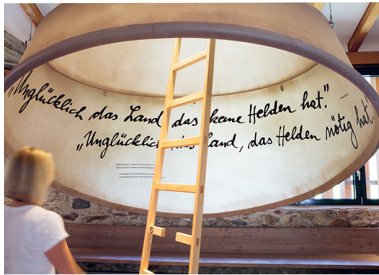 „Unglücklich das Land, das keine Helden hat“.
„Unglücklich das Land, das Helden nötig hat